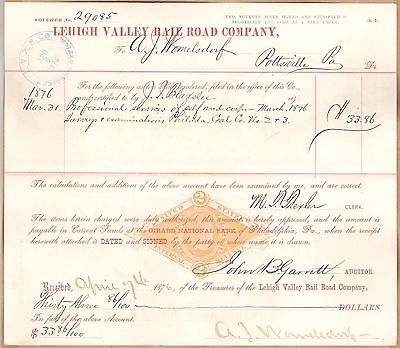 VOUCHER No. 29085
THIS VOUCHER WHEN SIGNED AND RECEIPTED IS
NEGOTIABLE THE SAME AS A BANK CHECK.
LEHIGH VALLEY RAIL ROAD COMPANY,
To A. J. Womelsdorf
Pottsville Pa Dr.
For the following account rendered, filed in the office of this Co.,
1876 and certified to by J. I. Blakslee viz:
Mar. 31 Professional services of self and corps - March 1876
surveys + examinations Philada. Coal Co. No. 2 + 3. $ 33.86
The calculations and additions of the above account have been examined by me, and are correct.
CLERK.
The items herein charged were duly authorized, this account is hereby approved, and the amount is
payable in Current Funds at the GIRARD NATIONAL BANK of Philadelphia, Pa., when the
receipt herewith attached is DATED and SIGNED by the party of whose name it is drawn.
John B Garrett, AUDITOR.
Received, April 1876, of the Treasurer of the Lehigh Valley Rail Road Company,
Thirty three 86/100 DOLLARS
In full of the above Account.
$ 33 86/100 A. J. Womelsdorf